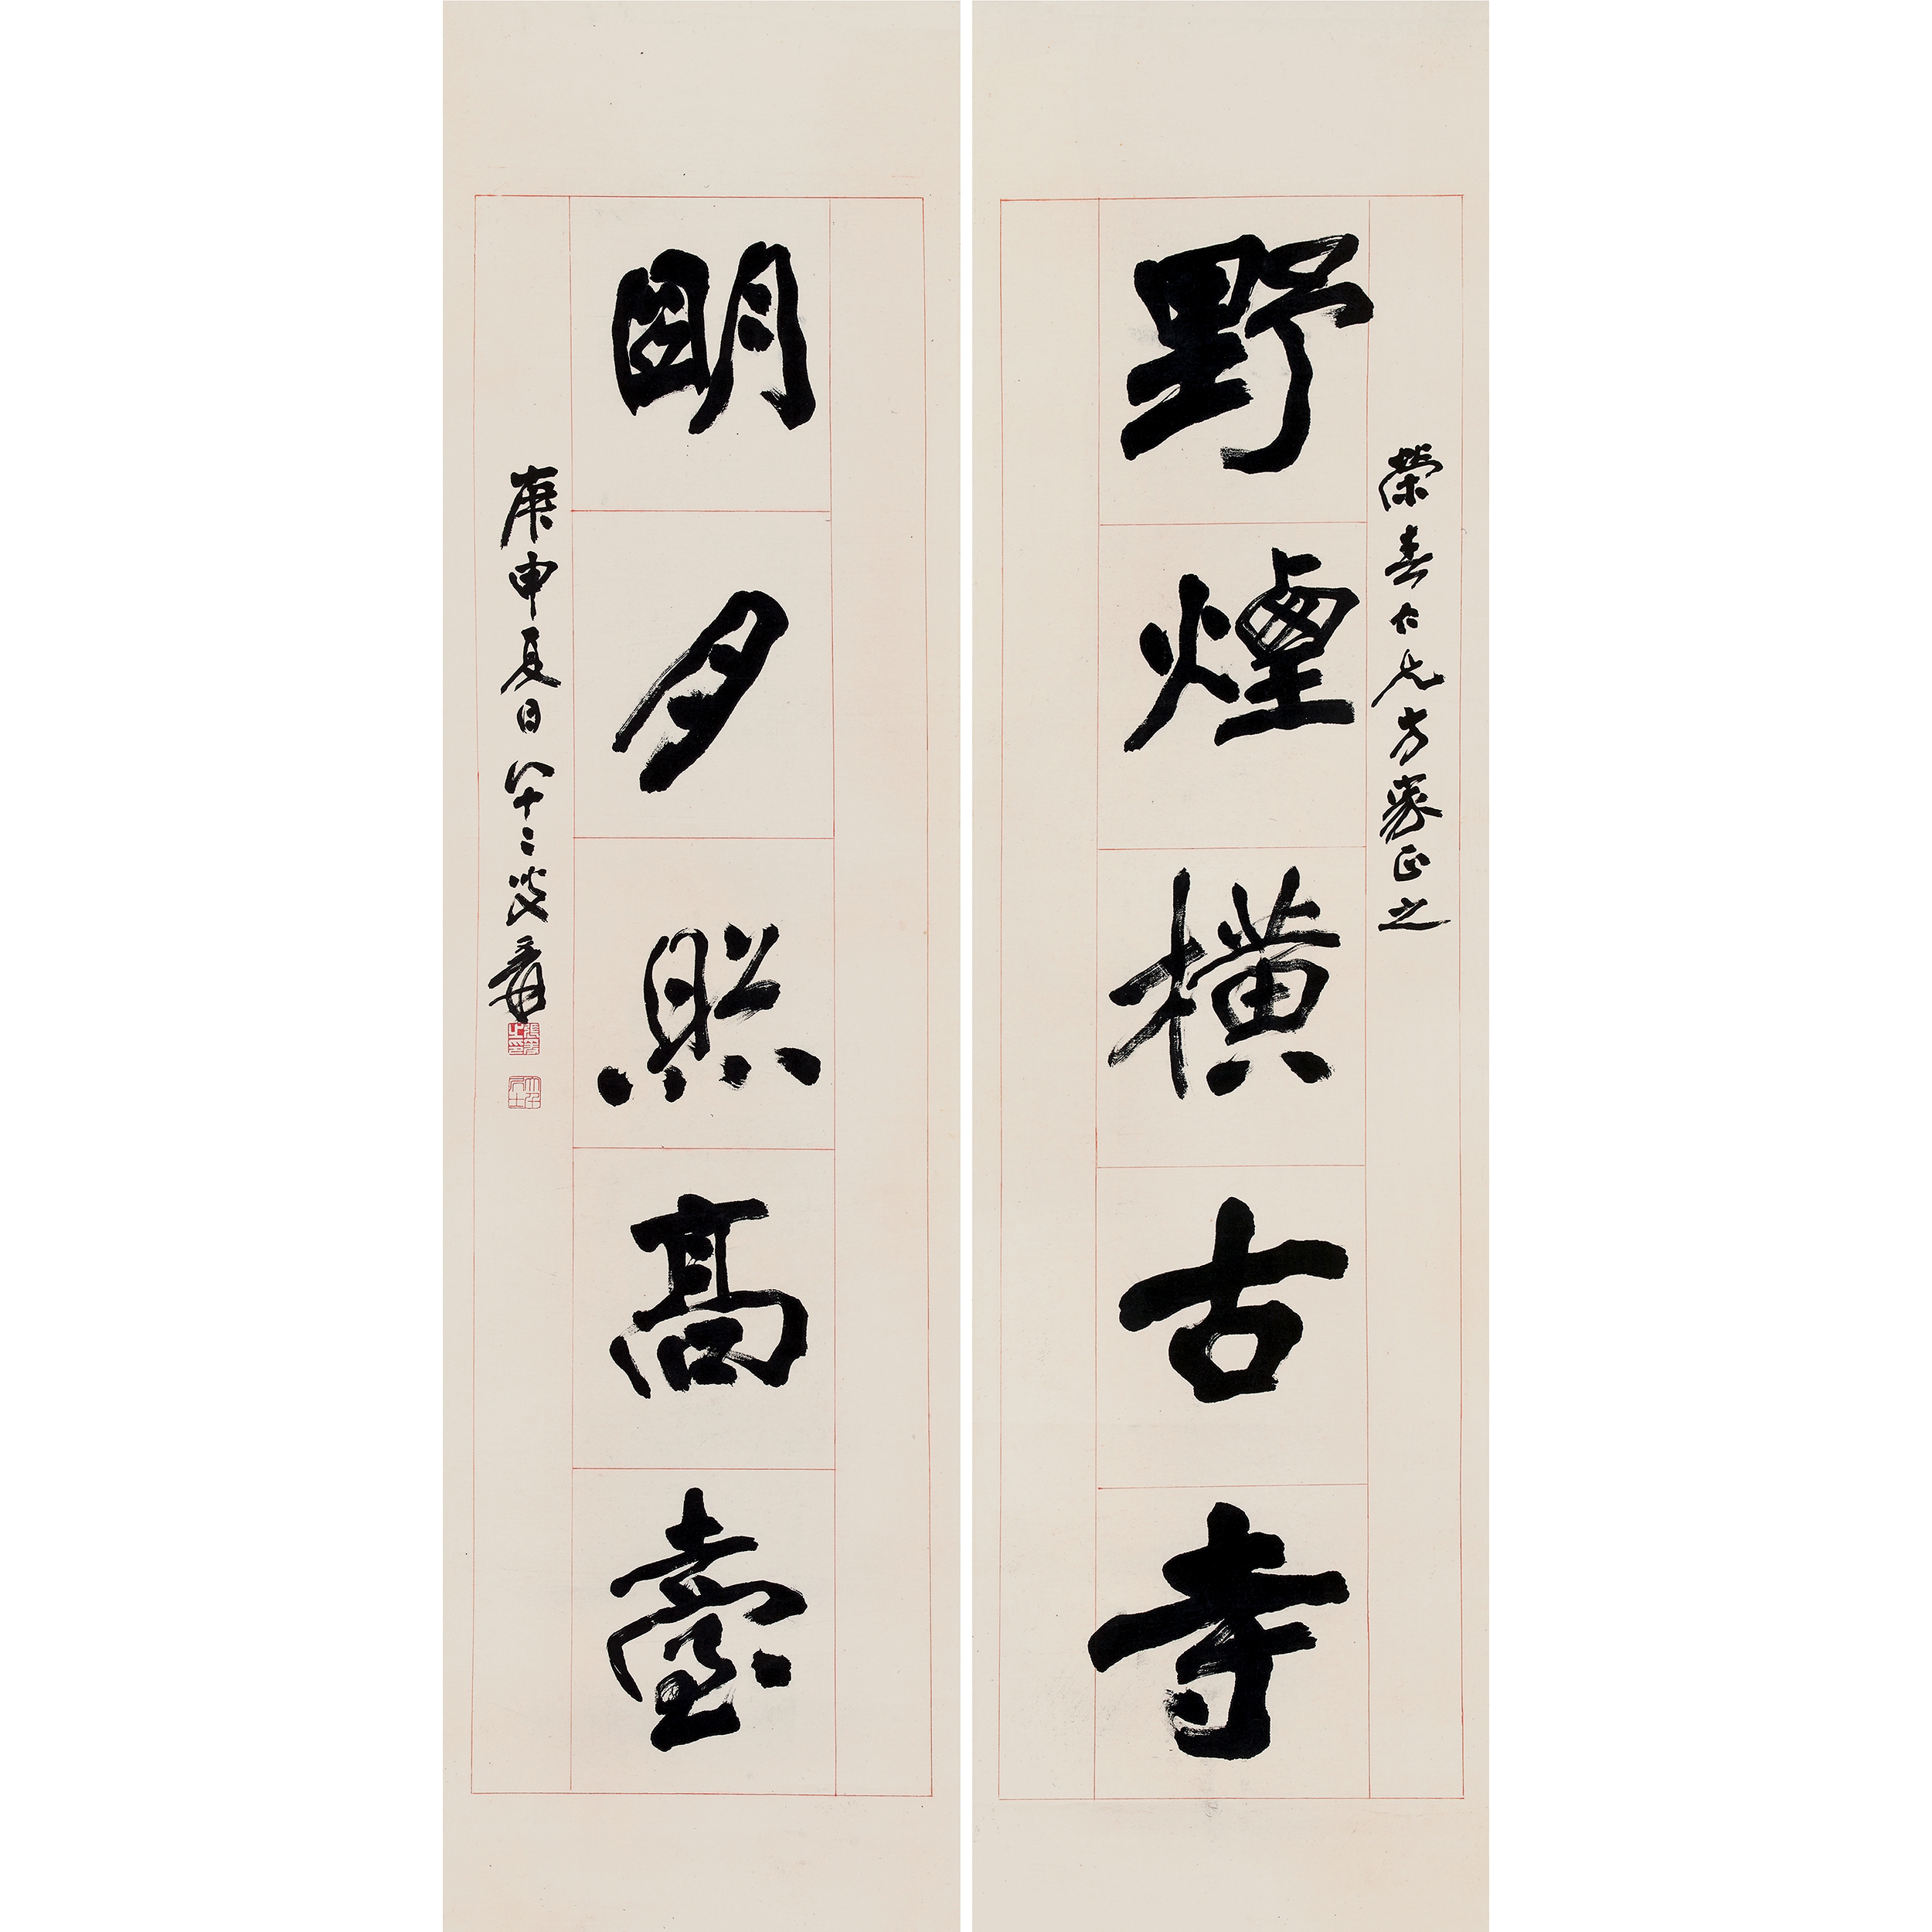 榮春仁兄方家正之
野煙橫古寺
明月照高臺
庚申夏日八十二叟爰
張爰之印
大千居士